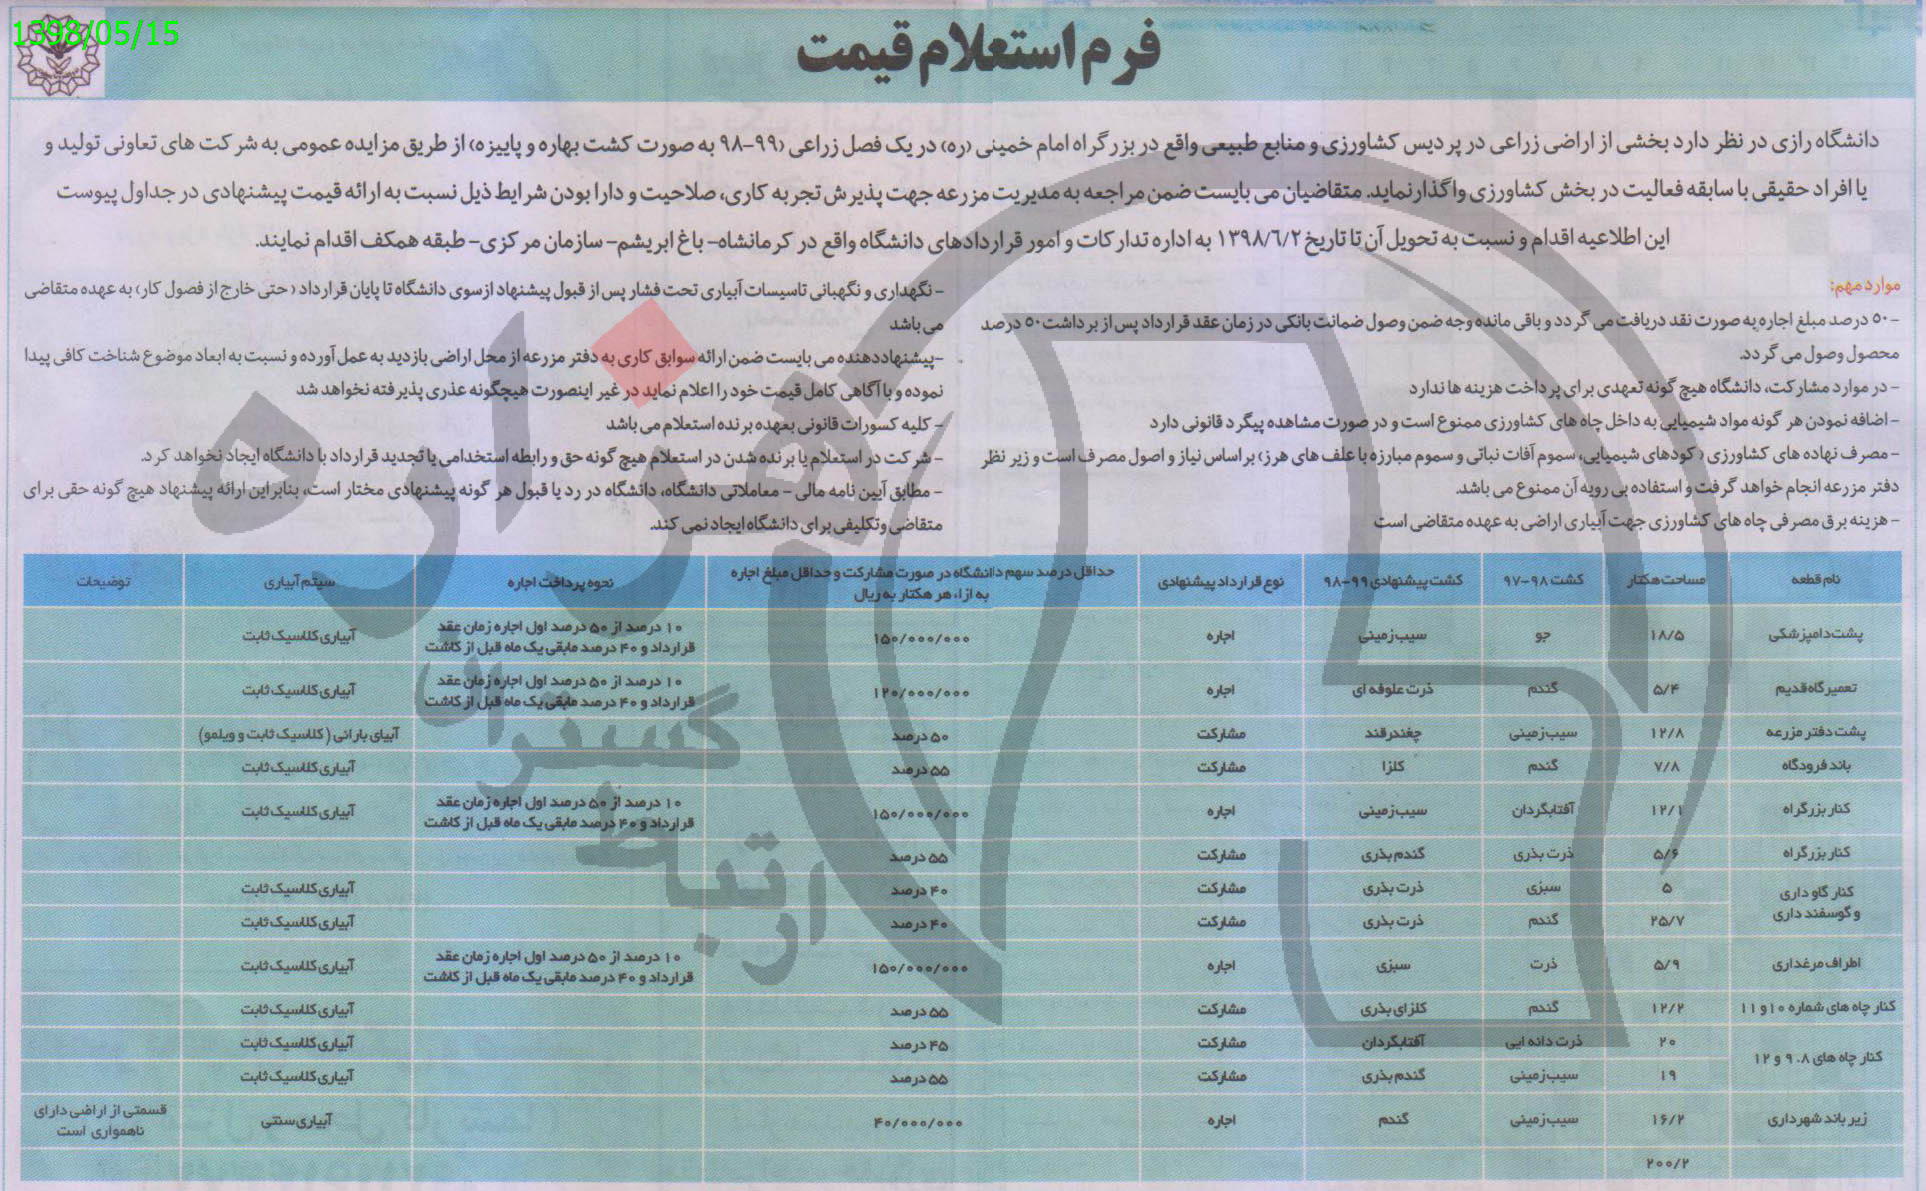 1398/05/15
فرم استعلام قیمت
دانشگاه رازی در نظر دارد بخشی از اراضی زراعی در پردیس کشاورزی و منابع طبیعی واقع در بزرگراه امام خمینی (ره) در یک فصل زراعی (۹۹-۹۸ به صورت کشت بهاره و پاییزه) از طریق مزایده عمومی به شرکت های تعاونی تولید و
یا افراد حقیقی با سابقه فعالیت در بخش کشاورزی واگذارنماید. متقاضیان می بایست ضمن مراجعه به مدیریت مزرعه جهت پذیرش تجربه کاری، صلاحیت و دارا بودن شرایط ذیل نسبت به ارائه قیمت پیشنهادی در جداول پیوست
این اطلاعیه اقدام و نسبت به تحویل آن تا تاریخ ۱۳۹۸/۶/۲ به اداره تدارکات و امور قراردادهای دانشگاه واقع در کرمانشاه- باغ ابریشم- سازمان مرکزی- طبقه همکف اقدام نمایند.
موارد مهم:
- ۵۰ درصد مبلغ اجاره به صورت نقد دریافت می گردد و باقی مانده وجه ضمن وصول ضمانت بانکی در زمان عقد قرارداد پس از برداشت ۵۰ درصد
محصول وصول می گردد.
- در موارد مشارکت، دانشگاه هیچ گونه تعهدی برای پرداخت هزینه ها ندارد
- اضافه نمودن هر گونه مواد شیمیایی به داخل چاه های کشاورزی ممنوع است و در صورت مشاهده پیگرد قانونی دارد
- مصرف نهاده های کشاورزی (کودهای شیمیایی، سموم آفات نباتی و سموم مبارزه با علف های هرز) براساس نیاز و اصول مصرف است و زیر نظر
دفتر مزرعه انجام خواهد گرفت و استفاده بی رویه آن ممنوع می باشد.
- هزینه برق مصرفی چاه های کشاورزی جهت آبیاری اراضی به عهده متقاضی است
- نگهداری و نگهبانی تاسیسات آبیاری تحت فشار پس از قبول پیشنهاد ازسوی دانشگاه تا پایان قرارداد (حتی خارج از فصول کار) به عهده متقاضی
می باشد
- پیشنهاددهنده می بایست ضمن ارائه سوابق کاری به دفتر مزرعه از محل اراضی بازدید به عمل آورده و نسبت به ابعاد موضوع شناخت کافی پیدا
نموده و با آگاهی کامل قیمت خود را اعلام نماید در غیر اینصورت هیچگونه عذری پذیرفته نخواهد شد
- کلیه کسورات قانونی بعهده برنده استعلام می باشد
- شرکت در استعلام یا برنده شدن در استعلام هیچ گونه حق و رابطه استخدامی یا تجدید قرارداد با دانشگاه ایجاد نخواهد کرد.
- مطابق آیین نامه مالی - معاملاتی دانشگاه، دانشگاه در رد یا قبول هر گونه پیشنهادی مختار است، بنابراین ارائه پیشنهاد هیچ گونه حقی برای
متقاضی و تکلیفی برای دانشگاه ایجاد نمی کند.
نام قطعه مساحت هکتار کشت ۹۸-۹۷ کشت پیشنهادی ۹۹-۹۸ نوع قرارداد پیشنهادی حداقل درصد سهم دانشگاه در صورت مشارکت و حداقل مبلغ اجاره نحوه پرداخت اجاره سیتم آبیاری توضیحات
به ازاء هر هکتار به ریال
پشت دامپزشکی ۱۸/۵ جو سیب زمینی اجاره ۱۵۰/۰۰۰/۰۰۰ ۱۰ درصد از ۵۰ درصد اول اجاره زمان عقد آبیاری کلاسیک ثابت
قرارداد و ۴۰ درصد مابقی یک ماه قبل از کاشت
تعمیرگاه قدیم ۵/۴ گندم ذرت علوفه ای اجاره ۱۲۰/۰۰۰/۰۰۰ ۱۰ درصد از ۵۰ درصد اول اجاره زمان عقد آبیاری کلاسیک ثابت
قرارداد و ۴۰ درصد مابقی یک ماه قبل از کاشت
پشت دفتر مزرعه ۱۲/۸ سیب زمینی چغندرقند مشارکت ۵۰ درصد آبیای بارانی (کلاسیک ثابت و ویلمو)
باند فرودگاه ۷/۸ گندم کلزا مشارکت ۵۵ درصد آبیاری کلاسیک ثابت
کنار بزرگراه ۱۲/۱ آفتابگردان سیب زمینی اجاره ۱۵۰/۰۰۰/۰۰۰ ۱۰ درصد از ۵۰ درصد اول اجاره زمان عقد آبیاری کلاسیک ثابت
قرارداد و ۴۰ درصد مابقی یک ماه قبل از کاشت
کنار بزرگراه ۵/۶ ذرت بذری گندم بذری مشارکت ۵۵ درصد
کنار گاو داری ۵ سبزی ذرت بذری مشارکت ۴۰ درصد آبیاری کلاسیک ثابت
و گوسفند داری ۲۵/۷ گندم ذرت بذری مشارکت ۴۰ درصد آبیاری کلاسیک ثابت
اطراف مرغداری ۵/۹ ذرت سبزی اجاره ۱۵۰/۰۰۰/۰۰۰ ۱۰ درصد از ۵۰ درصد اول اجاره زمان عقد آبیاری کلاسیک ثابت
قرارداد و ۴۰ درصد مابقی یک ماه قبل از کاشت
کنار چاه های شماره ۱۰ و ۱۱ ۱۲/۲ گندم کلزای بذری مشارکت ۵۵ درصد آبیاری کلاسیک ثابت
کنار چاه های ۹،۸ و ۱۲ ۲۰ ذرت دانه ایی آفتابگردان مشارکت ۴۵ درصد آبیاری کلاسیک ثابت
۱۹ سیب زمینی گندم بذری مشارکت ۵۵ درصد آبیاری کلاسیک ثابت
زیر باند شهرداری ۱۶/۲ سیب زمینی گندم اجاره ۴۰/۰۰۰/۰۰۰ آبیاری سنتی قسمتی از اراضی دارای
ناهمواری است
۲۰۰/۲
هزاره
گستران
ارتباط